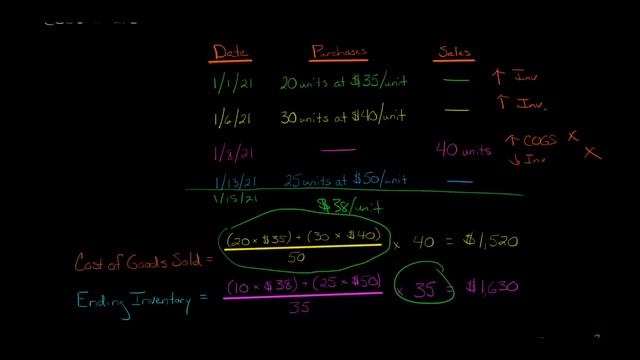 Date Purchases Sales
1/1/21 20 units at $35/unit — ↑ Inv
1/6/21 30 units at $40/unit — ↑ Inv.
1/8/21 — 40 units ↑ COGS x
↓ Inv x
1/13/21 25 units at $50/unit —
1/15/21
$38/unit
Cost of Goods Sold = (20 x $35) + (30 x $40) x 40 = $1,520
50
Ending Inventory = (10 x $38) + (25 x $50) x 35 = $1,630
35